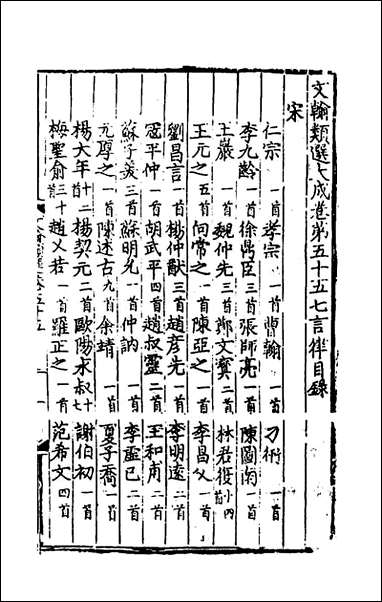 文翰類選大成卷第五十五七言律目錄
宋
仁宗 一首 孝宗 一首 曹翰 一首 刁衎 一首
李九齡 一首 徐鼎臣 三首 張師亮 一首 陳圖南 一首
王巖 一首 魏仲先 三首 鄭文寶 二首 林君復 十四首
王元之 五首 向常之 一首 陳亞之 一首 李昌父 一首
劉昌言 一首 楊仲猷 三首 趙彥先 一首 李明遠 二首
寇平仲 一首 胡武平 四首 趙叔靈 二首 王和甫 二首
蘇子美 三首 蘇明允 一首 仲訥 一首 李盧已 二首
元厚之 一首 陳述古 九首 余靖 一首 夏子喬 一首
楊大年 十二首 楊契元 二首 歐陽永叔 十七首 謝伯初 一首
梅聖俞 三十首 趙乂若 一首 羅正之 一首 范希文 四首